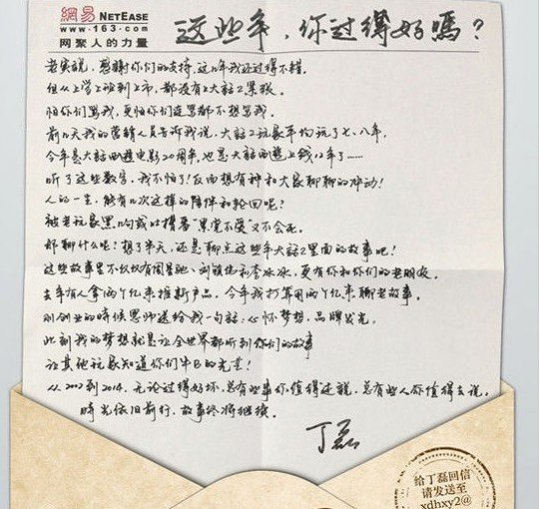 網易 NETEASE
www.163.com
网聚人的力量
这些年，你过得好嗎？
老实说，感谢你们的支持，这几年我还过得不错。
但从上学上班到上市，都没有上大话2累损。
怕你们骂我，更怕你们连骂都不想骂我。
前几天我的营销人员告诉我说，大话2玩家平均玩了七、八年。
今年是大话西遊电影20周年，也是大话西遊上线12年了……
听了这些数字，我不怕了！反而想有种和大家聊聊的冲动！
人的一生，能有几次这样的陪伴和轮回呢？
被老玩家黑几句或以揩着“黑党不爱”又不会死。
那聊什么呢？想了半天，还是聊点这些年大话2里面的故事吧！
这些故事里不仅仅有周星驰、刘镇伟和李冰冰，更有你和你们的老朋友。
去年有人拿两个亿来推新产品，今年我打算用两个亿来聊老故事。
刚创业的时候恩师送给我一句话：心怀梦想，品牌发光。
此刻我的梦想就是让全世界都听到你们的故事
让其他玩家知道你们牛B的光芒！
从2002到2014，无论过得好坏，总有些事你值得还说，总有些人你值得去说。
时光依旧前行，故事终将继续。
丁磊
给丁磊回信
请发送至
xdhxy2@